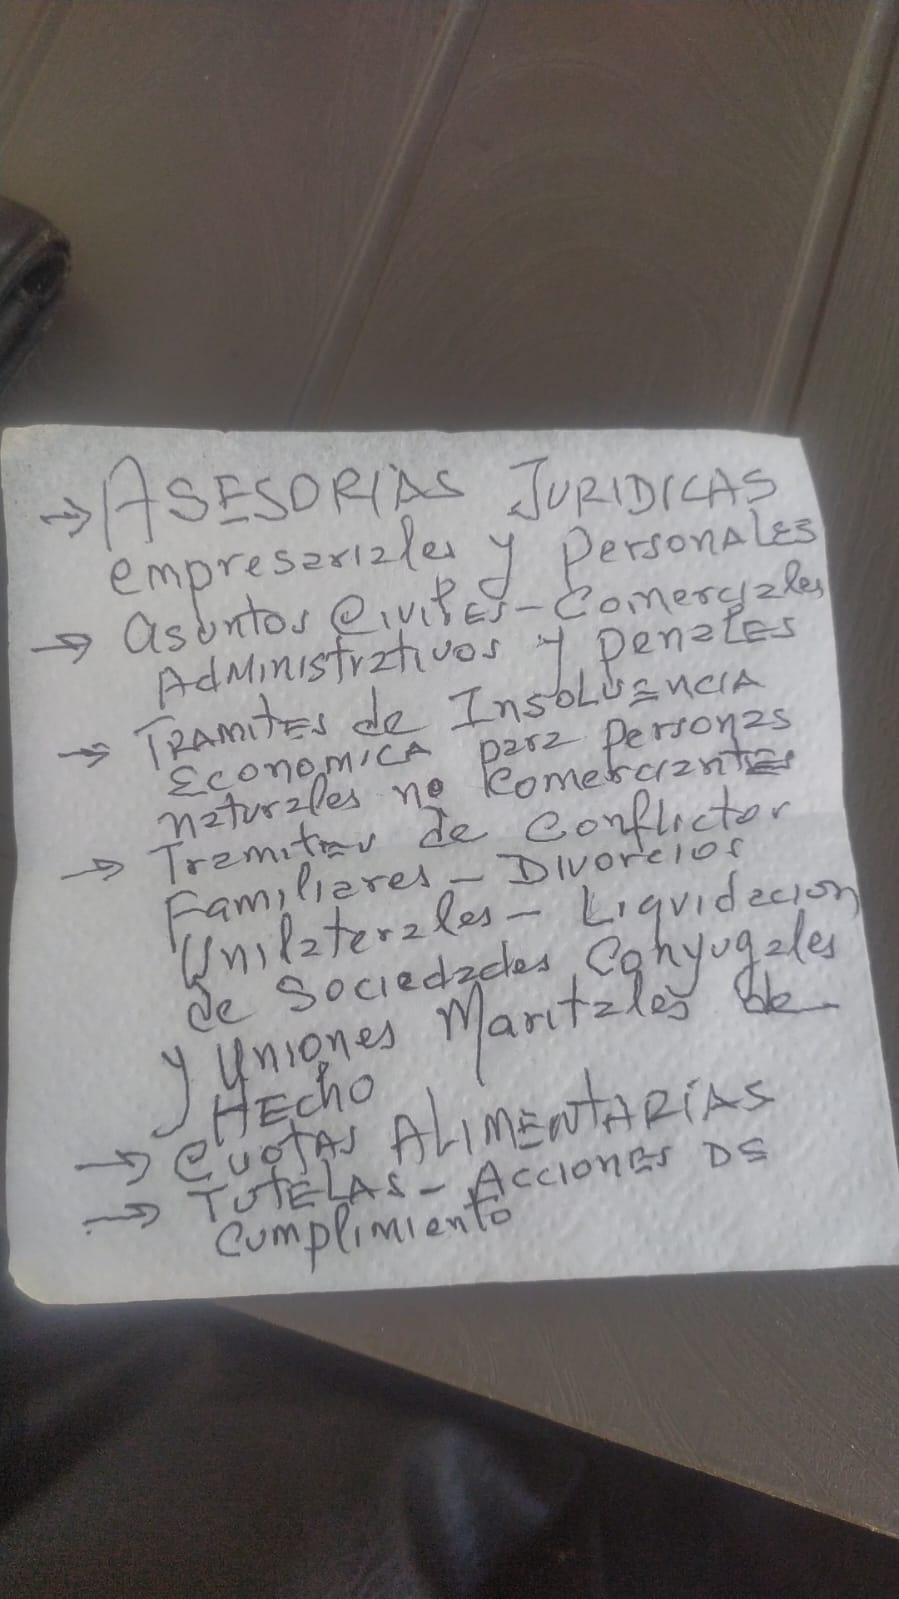 → ASESORÍAS JURIDICAS
empresariales y Personales
→ Asuntos Civiles - Comerciales
Administrativos y penales
→ Tramites de Insolvencia
Economica para personas
naturales no Comerciantes
→ Tramites de Conflictos
Familiares - Divorcios
Unilaterales - Liquidacion
de Sociedades Conyugales
y Uniones Maritales de
Hecho
→ Cuotas ALIMENTARÍAS
→ TUTELAS - Acciones DE
Cumplimiento